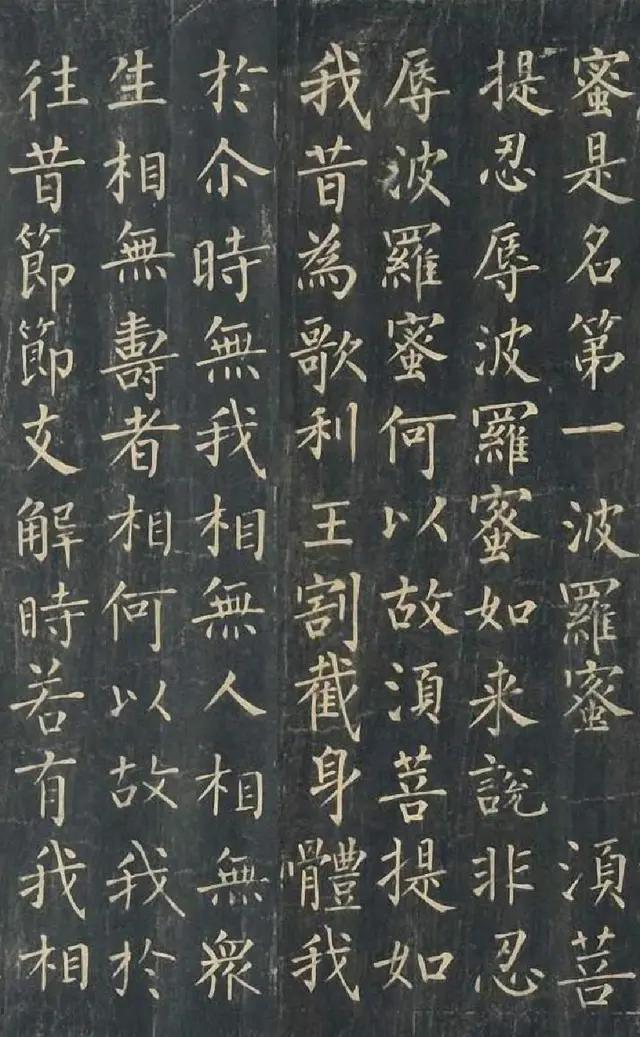 蜜是名第一波羅蜜　湏菩
提忍辱波羅蜜如来說非忍
辱波羅蜜何以故湏菩提如
我昔為歌利王割截身體我
於尒時無我相無人相無衆
生相無壽者相何以故我於
往昔節節支解時若有我相